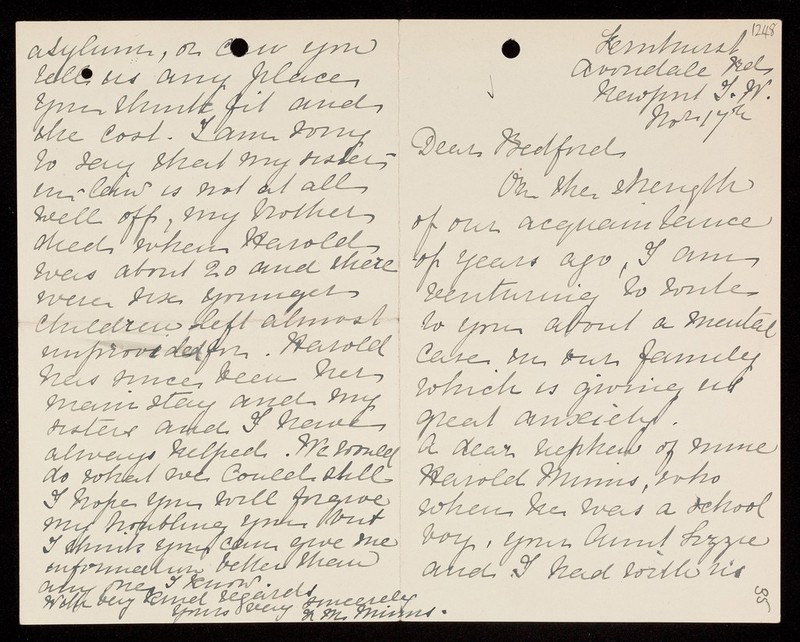 1248
Fernhurst
Avondale Rd
Newport I. W.
Nov 17th
Dear Bedford
On the strength
of our acquaintance
of years ago, I am
venturing to write
to you about a mental
case in our family
which is giving us
great anxiety.
A dear nephew of mine
Harold Mimms, who
when he was a school
boy, your Aunt Lizzie
and I had with us
85
asylum, or can you
tell us any place
you think fit and
the cost. I am sorry
to say that my sister-
in-law is not at all
well off, my brother
died when Harold
was about 20 and there
were six younger
children left almost
unprovided for. Harold
has since been her
main stay and my
sisters and I have
always helped. We would
do what we could still
I hope you will forgive
my troubling you but
I think you can give me
information better than
any one I know.
With very kind regards
Yours very sincerely
M. Mimms.